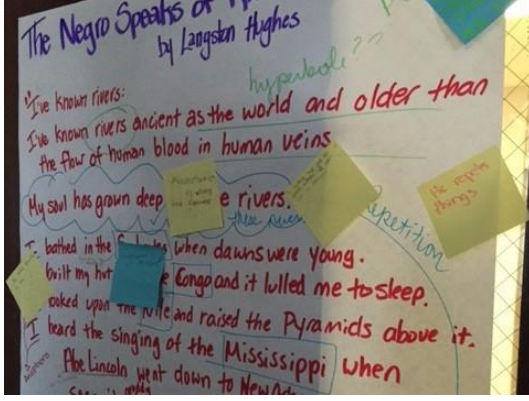 The Negro Speaks of
by Langston Hughes
hyperbole??
"I've known rivers:
I've known rivers ancient as the world and older than
the flow of human blood in human veins
My soul has grown deep e rivers.
these rivers
Repetition
He repeats
things
I bathed in the when dawns were young.
built my hut e Congo and it lulled me to sleep.
ooked upon the Nile and raised the Pyramids above it.
I heard the singing of the Mississippi when
Abe Lincoln went down to New